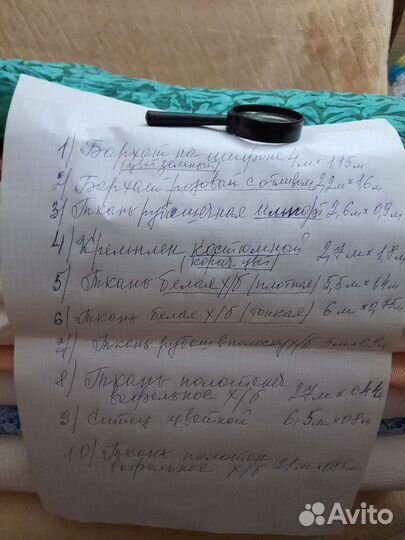 1) Бархат на шифоне 4м х 1,15м
(цвет зеленый)
2) Бархат розовой с отливом 2,2м х 1,6 м
3) Ткань рубашечная импорт 2,6м х 0,9м
4) Кремплен костюмный 2,7м х 1,8м
(корич цвет)
5) Ткань белая х/б (плотная) 5,5м х 1,4м
6) Ткань белая х/б (тонкая) 6 м х 0,75м
7) Ткань рубаш в полоску х/б 3м х
8) Ткань полотенеч
вафельное х/б 27м х 0,44
9) Ситец цветной 6,5м х 0,8
10) Ткань полотен
вафельное х/б 21м х
Avito